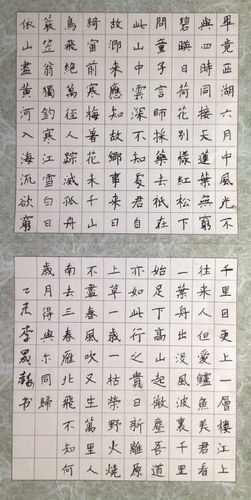 畢竟西湖六月中風光不
與四時同接天蓮葉無窮
碧映日荷花別樣紅松下
問童子言師採藥去祇在
此山中雲深不知處君自
故鄉來應知故鄉事來日
綺窗前寒梅着花未千山
鳥飛絕萬徑人踪滅孤舟
蓑笠翁獨釣寒江雪白日
依山盡黃河入海流欲窮
千里目更上一層樓江上
往來人但愛鱸魚美君看
一葉舟出沒風波裏千里
始足下高山起微塵吾道
亦如此行之貴日新離原
上草一歲一枯榮野火燒
不盡春風吹又生萬里人
南去三春雁北飛不知何
歲月得與尔同歸
乙未李書